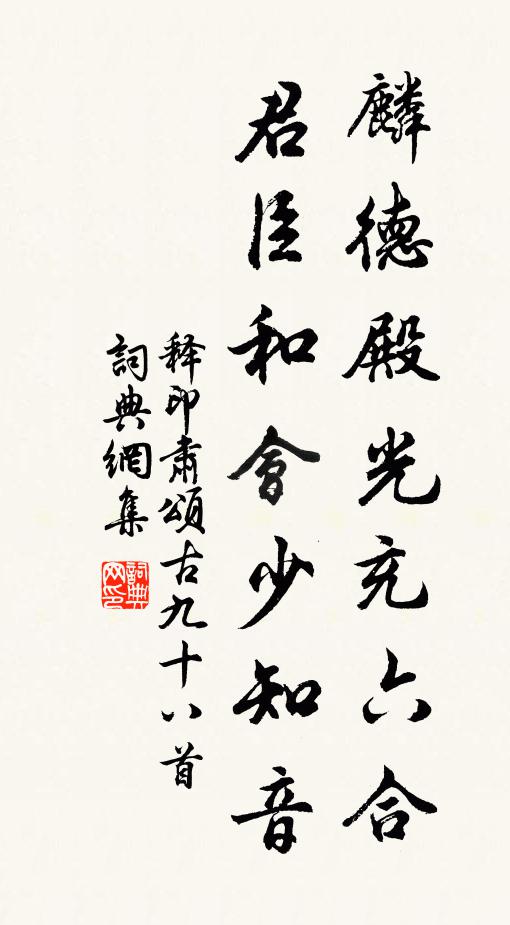 麟德殿光充六合
君臣和會少知音
释印肃頌古九十八首
詞典網集
詞典网印